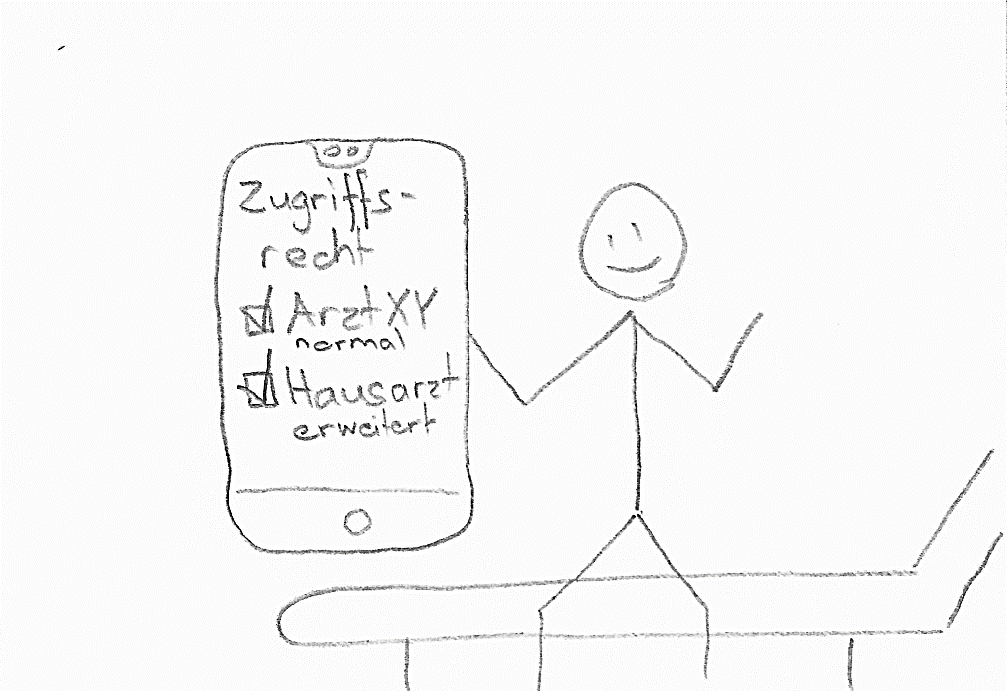 Zugriffs-
recht
Arzt XY
normal
Hausarzt
erweitert